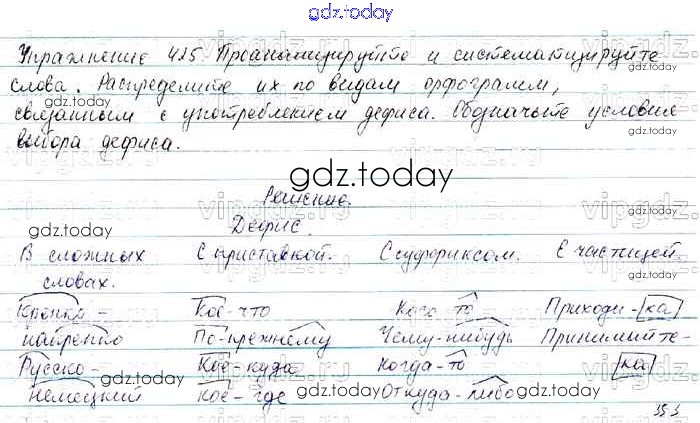 gdz.today
Упражнение 425. Проанализируйте и систематизируйте
слова. Распределите их по видам орфограмм,
gdz.today gdz.today
связанным с употреблением дефиса. Обозначьте условия
выбора дефиса.
gdz.today
Решение.
gdz.today gdz.today
Дефис.
В сложных С приставкой. С суффиксом. С частицей.
словах.
gdz.today
Крепко- Кое-что Кого-то Приходи-ка
накрепко По-прежнему Чему-нибудь Принимайте-
Русско- Кое-куда Когда-то ка
gdz.today gdz.today
немецкий Кое-где Откуда-либо
353